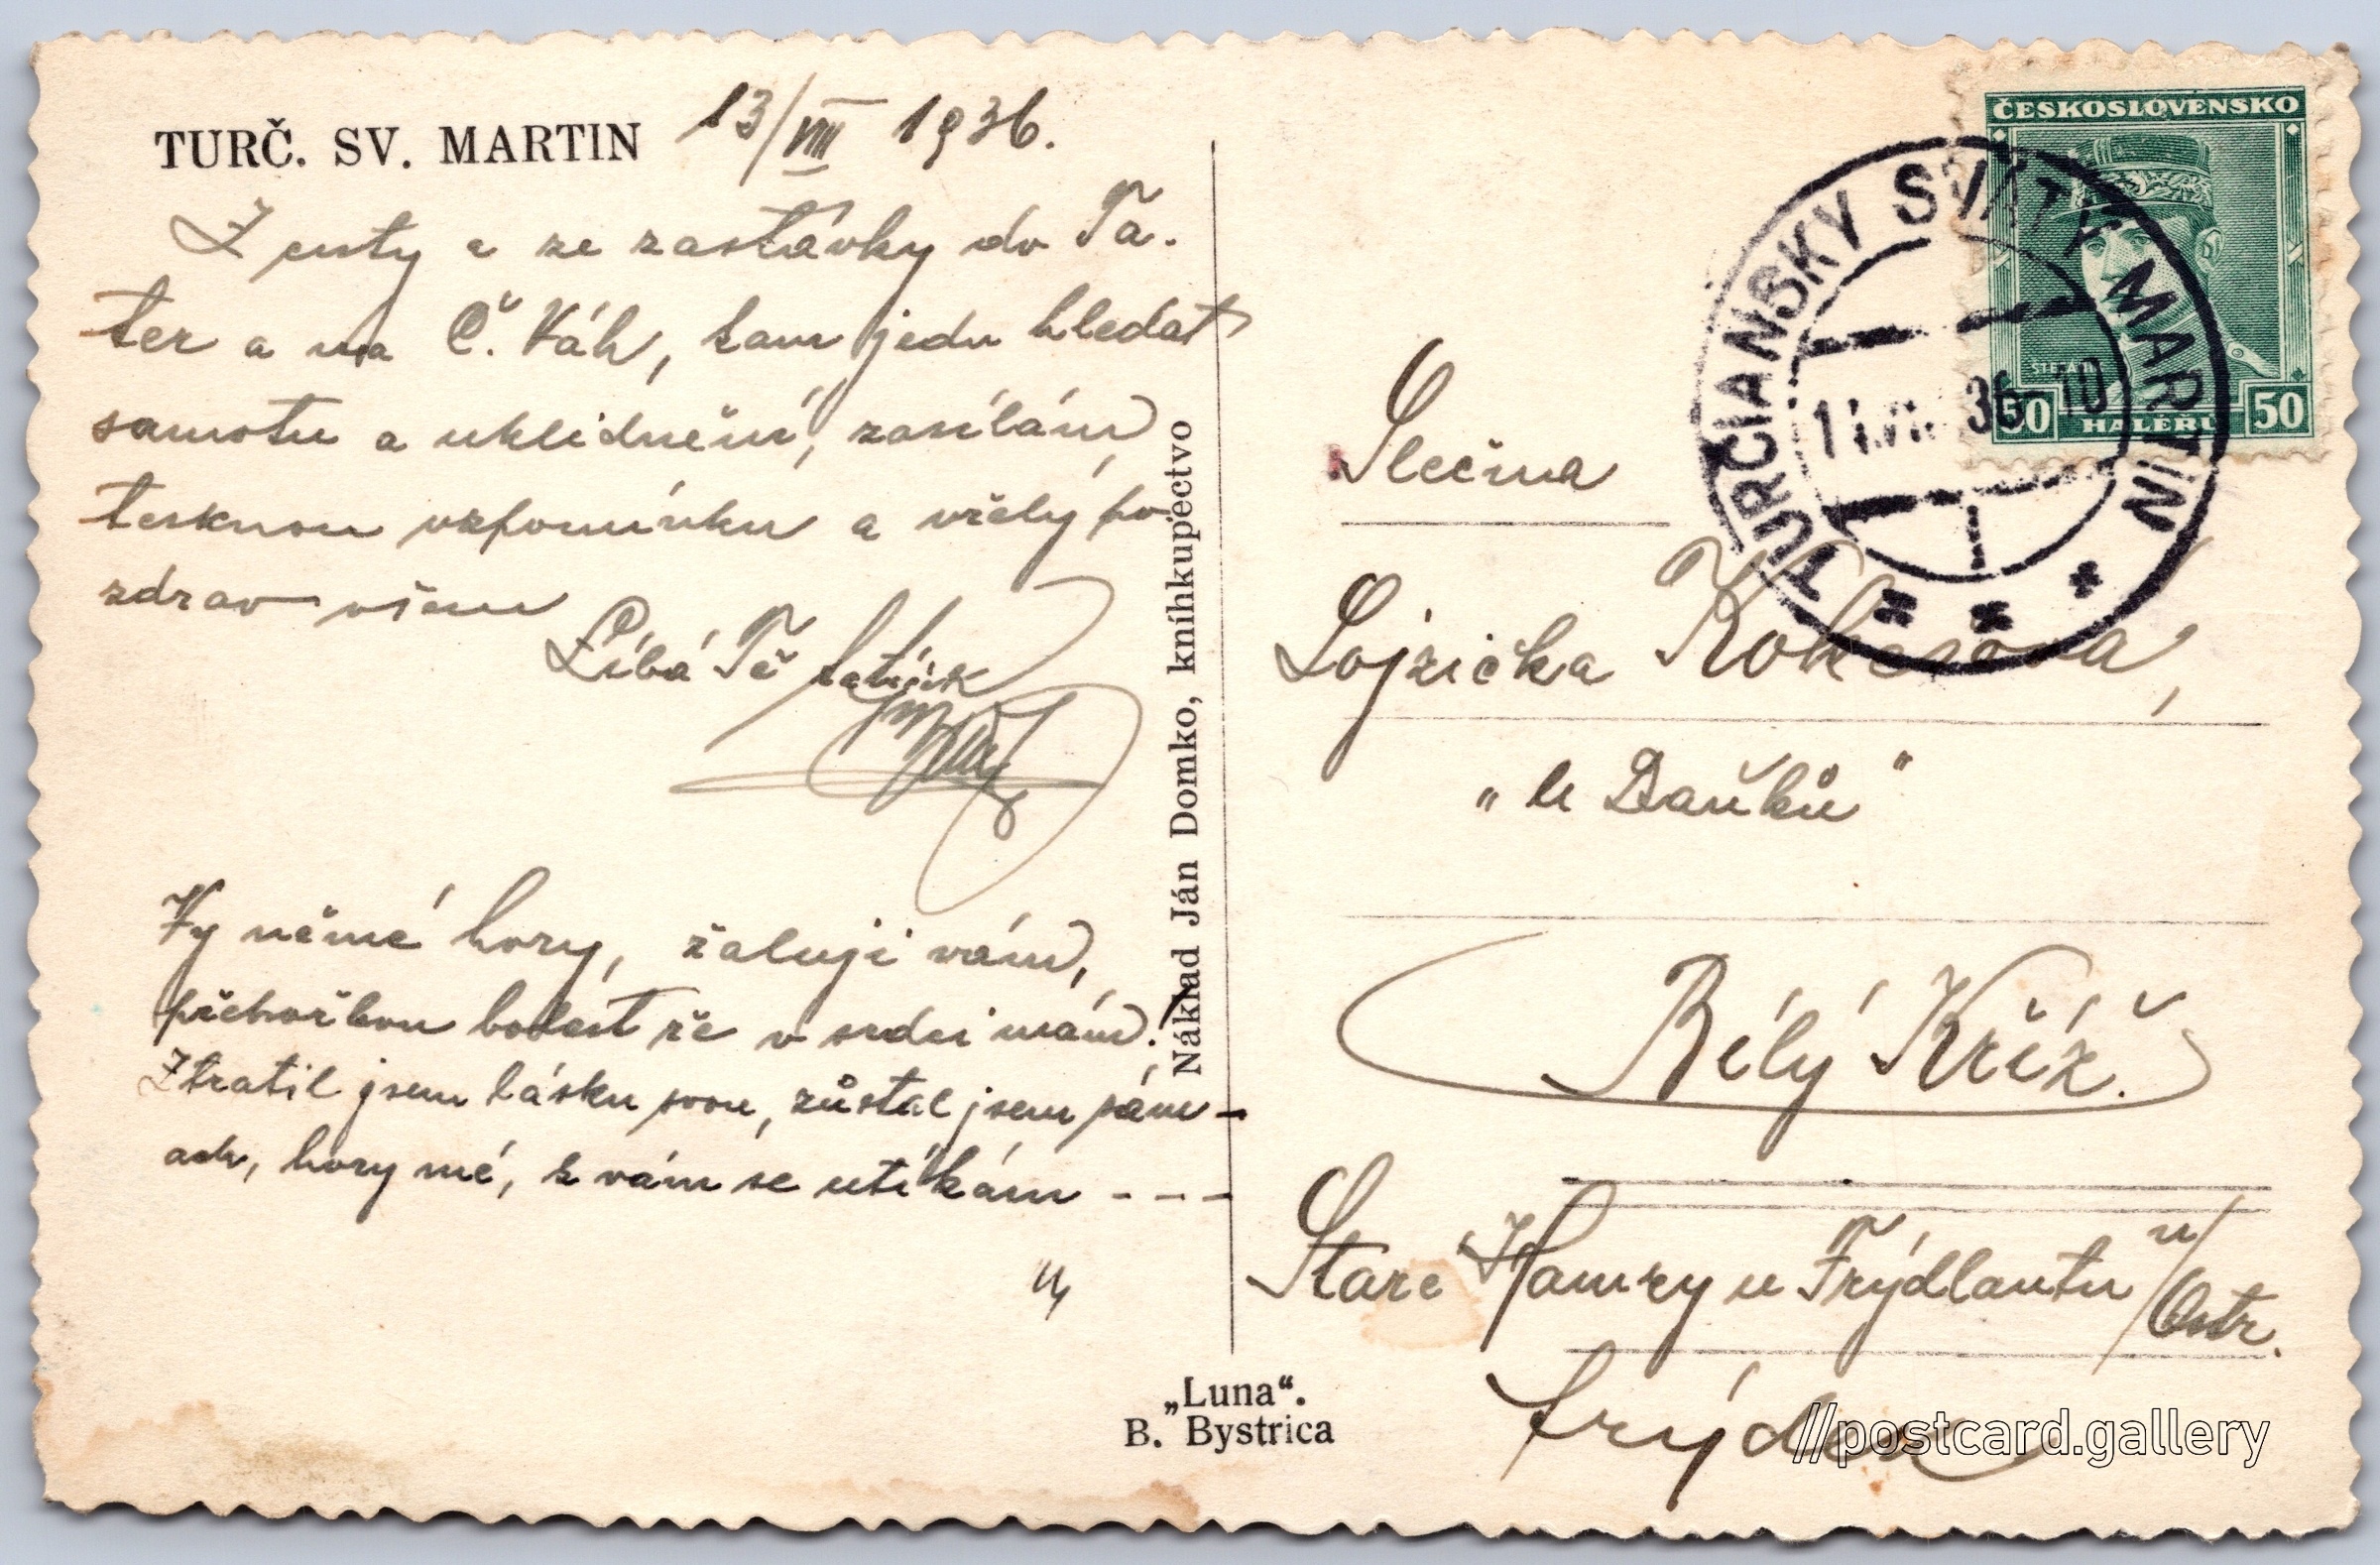 TURČ. SV. MARTIN 13/VIII 1936.
Z cesty a ze zastávky do Ta.
ter a na Č. Váh, kam jedu hledat
samotu a uklidnění, zasílám
tesknou vzpomínku a vřelý po
zdrav všem
Líbá Tě
Vy němé hory, žaluji vám,
přehořkou bolest že v srdci mám.
Ztratil jsem lásku svou, zůstal jsem sám –
ach, hory mé, k vám se utíkám - - -
Náklad Ján Domko, kníhkupectvo
„Luna“.
B. Bystrica
ČESKOSLOVENSKO
50 HALÉŘŮ 50
TURČIANSKY SVÄTÝ MARTIN
36-10
Slečna
Lojzička
„u Baňků"
Bílý Kříž.
Staré Hamry u Frýdlantu n/Ostr.
Frýdek
//postcard.gallery